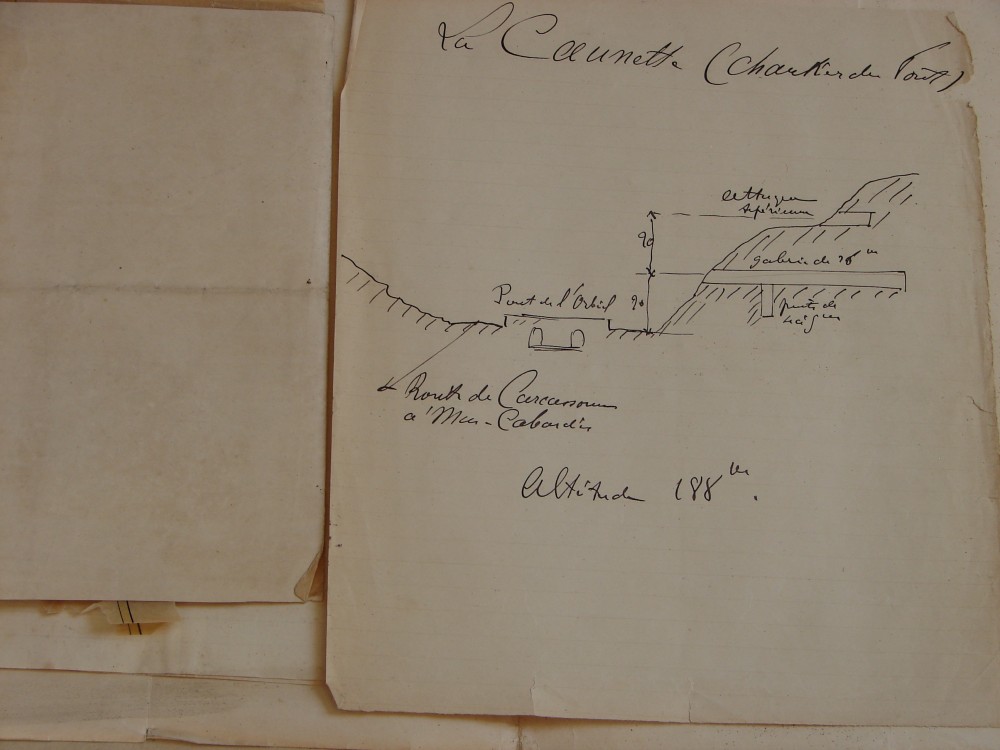 La Caunette (chantier du Pont)
attaque
supérieure
90
galerie de 76 m
90
Pont de l'Orbiel
puits de
Route de Carcassonne
a' Mas-Cabardès
Altitude 188 m.